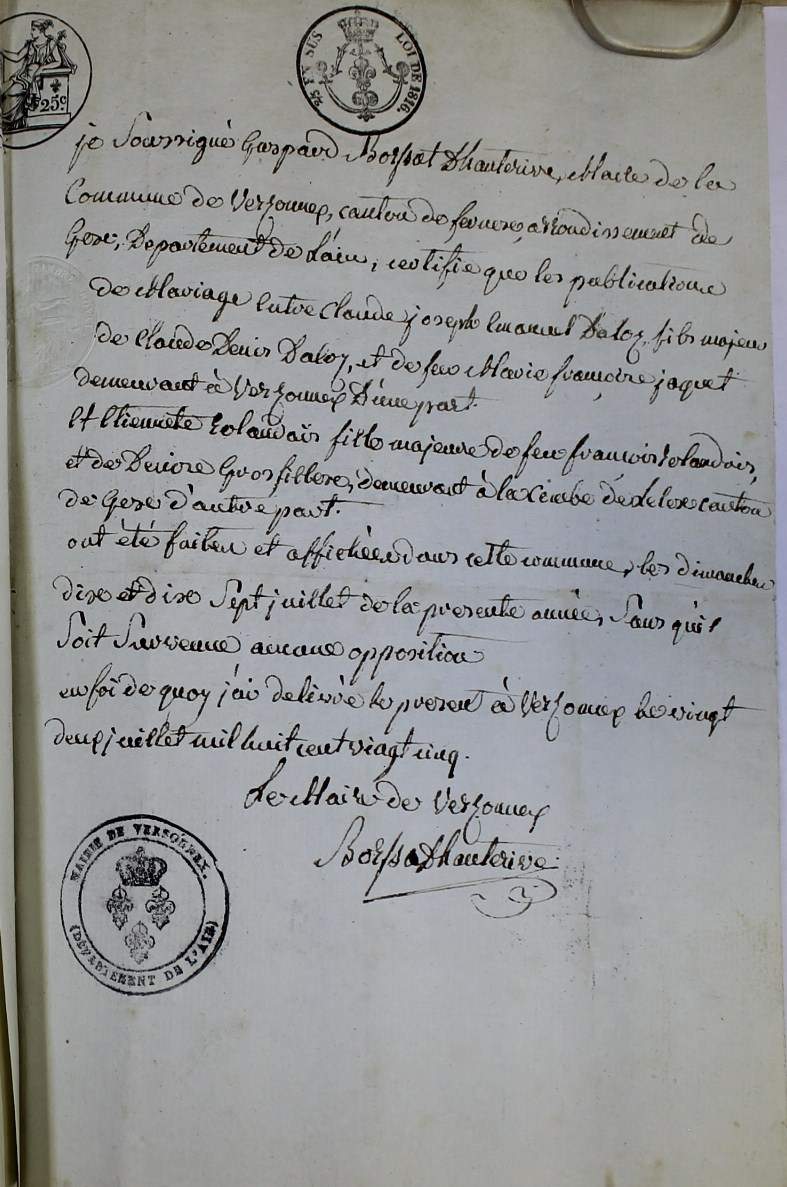 25c
2/5 EN SUS LOI DE 1816.
je Soussigné Gaspard Boissat Dhauterive, Maire de la
Commune de Versonnex, canton de ferneÿ arrondissement de
Gex, Departement de L'ain, certifie que les publications
de Mariage Entre Claude joseph Emanuel Daloz, fils majeur
de Claude Denis Daloz, et de feue Marie françoise jaquet
demeurant à Versonnex D'une part.
Et Etiennete Rolandais fille majeure de feu françois Rolandais,
et de Denise Grosfillex, demeurant à la Combe de Lelex canton
de Gex d'autre part.
ont été faites et affichées dans cette commune, les dimanches
dix et dix Sept juillet de la presente année, Sans qu'il
Soit Survenue aucune opposition
en foi de quoy j'ai delivré le present à Versonnex le vingt
deux juillet mil huit cent vingt cinq.
Le Maire de Versonnex
Boissat Dhauterive
MAIRIE DE VERSONNEX.
(DÉPARTEMENT DE L'AIN)